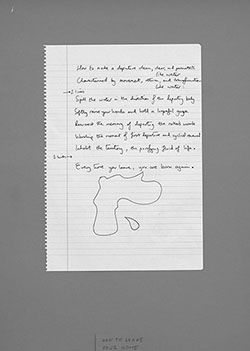 How to make a departure clean, clear, and permanent
like water
Characterised by movement, return, and transformation
like water
Spill the water in the direction of the departing body
Softly raise your hands and hold a hopeful gaze
the meaning of departing the rooted words
the moment of first departure and cyclical renewal
Inhabit the territory, the purifying fluid of life.
Every time you leave, you are born again.
HOW TO LEAVE
YOUR HOME